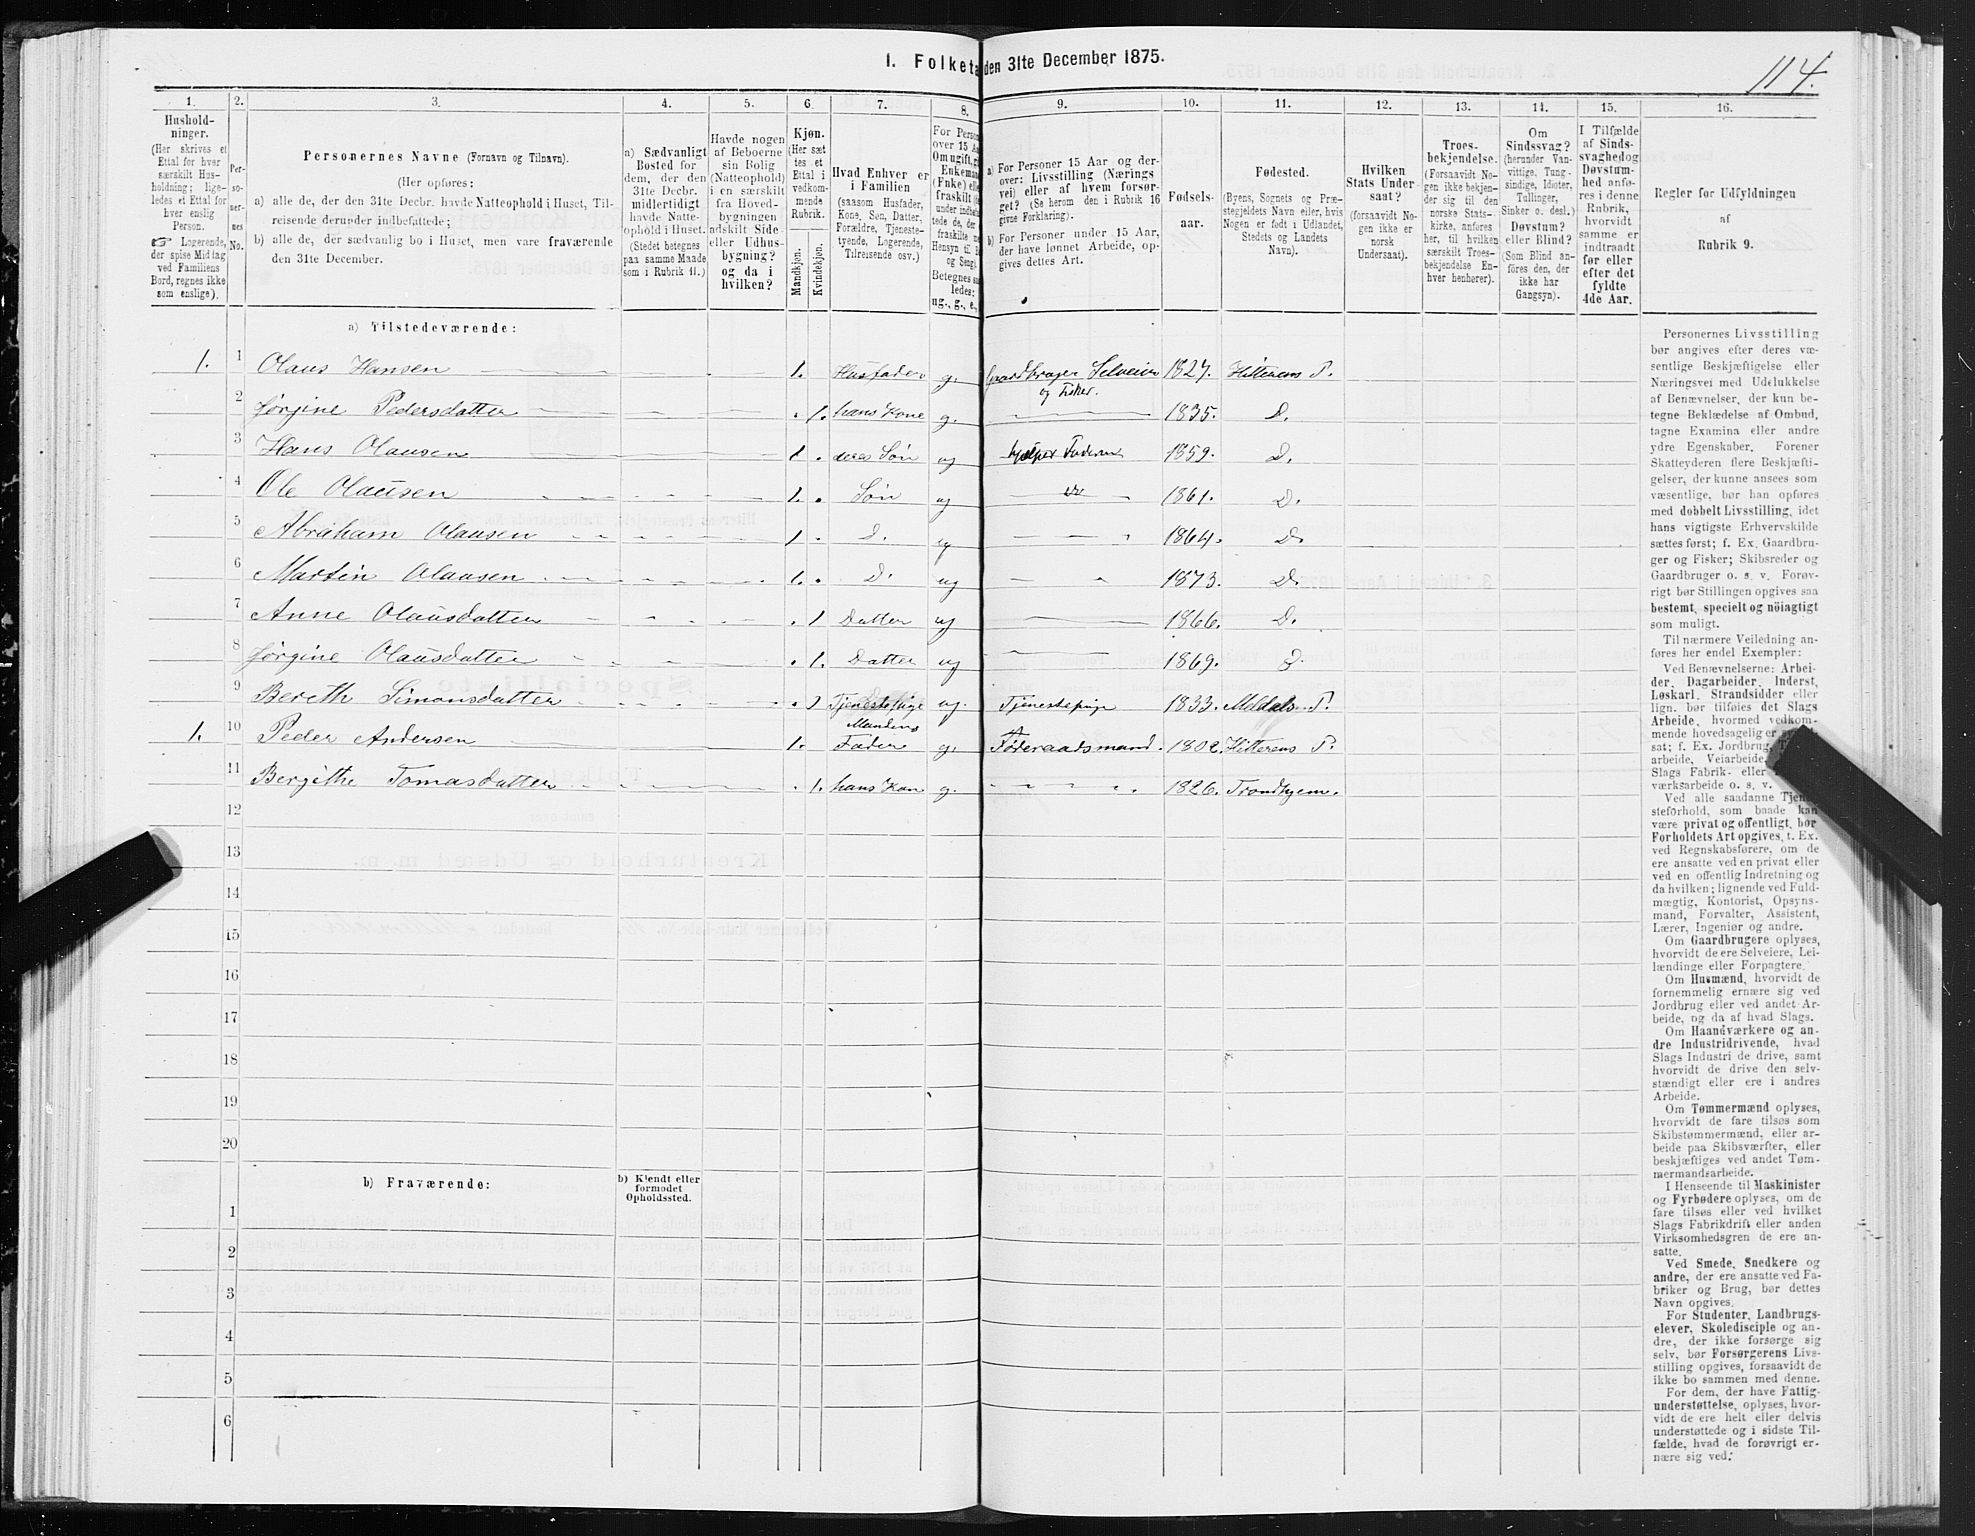 1. Folketa den 31te December 1875.
114.
1. 2. 3. 4. 5. 6. 7. 8. 9. 10. 11. 12. 13. 14. 15. 16.
Hushold-
ninger.
(Her skrives et
Ettal for hver
særskilt Hus-
holdning; lige-
ledes et Ettal for
hver enslig
Person.
☞ Logerende,
der spise Middag
ved Familiens
Bord, regnes ikke
som enslige).
Per-
so-
ner-
nes
No.
Personernes Navne (Fornavn og Tilnavn).
(Her opføres:
a) alle de, der den 31te Decbr. havde Natteophold i Huset, Til-
reisende derunder indbefattede;
b) alle de, der sædvanlig bo i Huset, men vare fraværende
den 31te December.
a) Sædvanligt
Bosted for
dem, der den
31te Decbr.
midlertidigt
havde Natte-
ophold i Huset.
(Stedet betegnes
paa samme Maade
som i Rubrik 11.)
Havde nogen
af Beboerne
sin Bolig
(Natteophold)
i en særskilt
fra Hoved-
bygningen
adskilt Side-
eller Udhus-
bygning?
og da i
hvilken?
Kjøn.
(Her sæt
tes et
Ettal i
vedkom-
mende
Rubrik.
Mandkjøn.
Kvindekjøn.
Hvad Enhver er
i Familien
(saasom Husfader,
Kone, Søn, Datter,
Forældre, Tjeneste-
tyende, Logerende,
Tilreisende osv.)
For Person
over 15 Aa
Om ugift, gi
Enkeman
(Enke) elle
fraskilt
Betegnes saa
ledes:
ug., g., e.,
a) For Personer 15 Aar og der-
over: Livsstilling (Nærings
vei) eller af hvem forsør-
get? (Se herom den i Rubrik 16
givne Forklaring).
b) For Personer under 15 Aar,
der have lønnet Arbeide, op-
gives dettes Art.
Fødsels-
aar.
Fødested.
(Byens, Sognets og Præ-
stegjeldets Navn eller, hvis
Nogen er født i Udlandet,
Stedets og Landets
Navn).
Hvilken
Stats Under-
saat?
(forsaavidt No-
gen ikke er
norsk
Undersaat).
Troes-
bekjendelse.
(Forsaavidt No-
gen ikke bekjen-
der sig til den
norske Stats-
kirke, anføres
her, til hvilken
særskilt Troes-
bekjendelse En-
hver henhører).
Om
Sindssvag?
(herunder Van-
vittige, Tung-
sindige, Idioter,
Tullinger,
Sinker o. desl.)
Døvstum?
eller Blind?
(Som Blind an-
føres den, der
ikke har
Gangsyn).
I Tilfælde
af Sinds-
svaghed og
Døvstum-
hed anfø-
res i denne
Rubrik,
hvorvidt
samme er
indtraadt
før eller
efter det
fyldte
4de Aar.
Regler for Udfyldningen
af
Rubrik 9.
a) Tilstedeværende:
1. 1 Olaus Hansen 1. Husfader g. Gaardbruger Selveier 1827. Hitterens P.
og Fisker.
2 Jørgine Pedersdatter 1. hans Kone g. 1835. D.
3 Hans Olausen 1 deres Søn ug hjelper Faderen 1859. D.
4 Ole Olausen 1. Søn ug 1861. D.
5 Abraham Olausen 1 D. ug 1864. D.
6 Martin Olausen 1. D. ug 1873. D.
7 Anne Olausdatter 1 Datter ug 1866. D.
8 Jørgine Olausdatter 1. Datter ug 1869. D.
9 Bereth Simonsdatter 1 Tjenestepige ug. Tjenestepige 1833. Meldals P.
1. 10 Peder Andersen 1. Mandens Fader g. Føderaadsmand. 1802. Hitterens P.
11 Bergithe Tomasdatter 1. hans Kon g. 1826. Trondhjem.
12
13
14
15
16
17
18
19
20
b) Fraværende:
b) Kjendt eller
formodet
Opholdssted.
1
2
3
4
5
6
Personernes Livsstilling
bør angives efter deres væ-
sentlige Beskjæftigelse eller
Næringsvei med Udelukkelse
af Benævnelser, der kun be-
tegne Beklædelse af Ombud,
tagne Examina eller andre
ydre Egenskaber. Forener
Skatteyderen flere Beskjæfti-
gelser, der kunne ansees som
væsentlige, bør han opføres
med dobbelt Livsstilling, idet
hans vigtigste Erhvervskilde
sættes først; f. Ex. Gaardbru-
ger og Fisker; Skibsreder og
Gaardbruger o. s. v. Forøv-
rigt bør Stillingen opgives saa
bestemt, specielt og nöiagtigt
som muligt.
Til nærmere Veiledning an-
føres her endel Exempler:
Ved Benævnelserne: Arbei-
der, Dagarbeider, Inderst,
Løskarl, Strandsidder eller
lign. bør tilføies det Slags
Arbeide, hvormed vedkom-
mende hovedsagelig er
sat; f. Ex. Jordbrug,
arbeide, Veiarbeide,
Slags Fabrik- eller
værksarbeide o. s. v.
Ved alle saadanne
steforhold, som baade kan
være privat og offentligt, bør
Forholdets Art opgives, t. Ex.
ved Regnskabsførere, om de
ere ansatte ved en privat eller
ved en offentlig Indretning og
da hvilken; lignende ved Fuld-
mægtig, Kontorist, Opsyns-
mand, Forvalter, Assistent,
Lærer, Ingeniør og andre.
Om Gaardbrugere oplyses,
hvorvidt de ere Selveiere, Lei-
lændinge eller Forpagtere.
Om Husmænd, hvorvidt de
fornemmelig ernære sig ved
Jordbrug eller ved andet Ar-
beide, og da af hvad Slags.
Om Haandværkere og an-
dre Industridrivende, hvad
Slags Industri de drive, samt
hvorvidt de drive den selv-
stændigt eller ere i andres
Arbeide.
Om Tømmermænd oplyses,
hvorvidt de fare tilsøs som
Skibstømmermænd, eller ar-
beide paa Skibsværfter, eller
beskjæftiges ved andet Tøm-
mermandsarbeide.
I Henseende til Maskinister
og Fyrbødere oplyses, om de
fare tilsøs eller ved hvilket
Slags Fabrikdrift eller anden
Virksomhedsgren de ere an-
satte.
Ved Smede, Snedkere og
andre, der ere ansatte ved Fa-
briker og Brug, bør dettes
Navn opgives.
For Studenter, Landbrugs-
elever, Skoledisciple og an-
dre, der ikke forsørge sig
selv, bør Forsørgerens Livs-
stilling opgives, forsaavidt de
ikke bo sammen med denne.
For dem, der have Fattig-
understøttelse, oplyses, hvor-
vidt de ere helt eller delvis
understøttede og i sidste Til-
fælde, hvad de forøvrigt er-
nære sig ved.